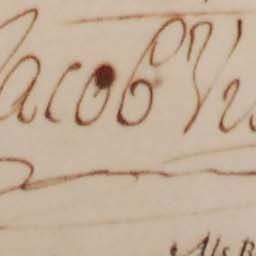 Jacob Vis
Als B